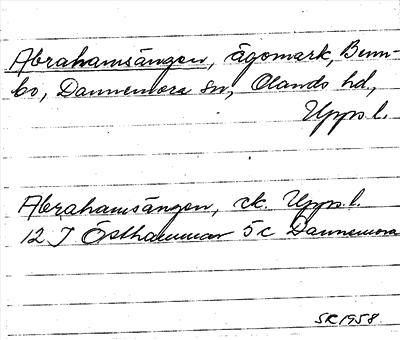 Abrahamsängen, ägomark, Benn-
bo, Dannemora sn, Olands hd,
Upps. l.
Abrahamsängen, ek. Upps. l.
12 I Östhammar 5c Dannemora
SK 1958.